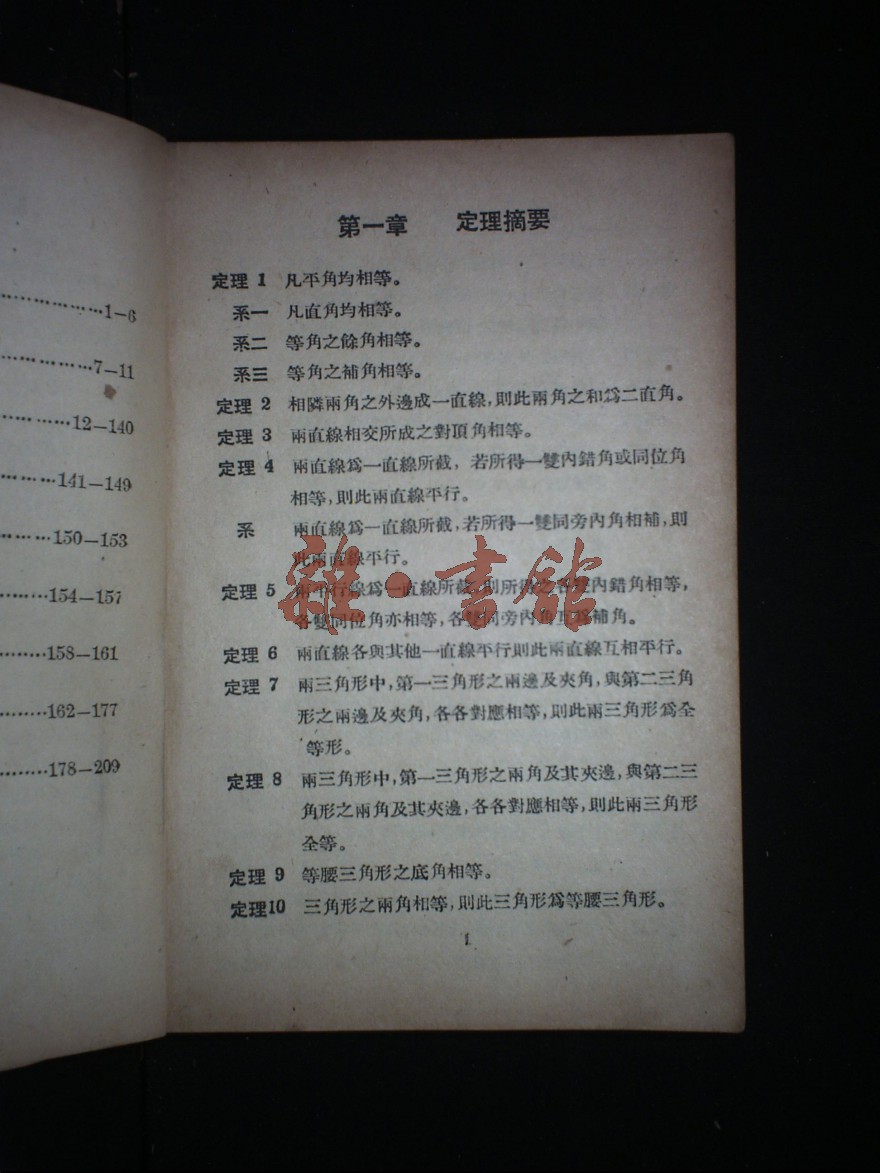 ………………1—6
……………7—11
…………12—140
………141—149
………150—153
………154—157
………158—161
………162—177
………178—209
第一章　定理摘要
定理 1 凡平角均相等。
系一 凡直角均相等。
系二 等角之餘角相等。
系三 等角之補角相等。
定理 2 相隣兩角之外邊成一直線，則此兩角之和爲二直角。
定理 3 兩直線相交所成之對頂角相等。
定理 4 兩直線爲一直線所截，若所得一雙內錯角或同位角
相等，則此兩直線平行。
系 兩直線爲一直線所截，若所得一雙同旁內角相補，則
此兩直線平行。
定理 5 兩平行線爲一直線所截，則所得之各雙內錯角相等，
各雙同位角亦相等，各雙同旁內角互爲補角。
定理 6 兩直線各與其他一直線平行則此兩直線互相平行。
定理 7 兩三角形中，第一三角形之兩邊及夾角，與第二三角
形之兩邊及夾角，各各對應相等，則此兩三角形爲全
等形。
定理 8 兩三角形中，第一三角形之兩角及其夾邊，與第二三
角形之兩角及其夾邊，各各對應相等，則此兩三角形
全等。
定理 9 等腰三角形之底角相等。
定理10 三角形之兩角相等，則此三角形爲等腰三角形。
1
雜·書館